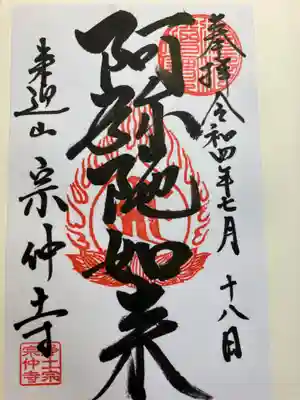 奉拝 令和四年七月十八日
阿弥陀如来
東迎山 宗仲寺
浄土宗
宗仲寺